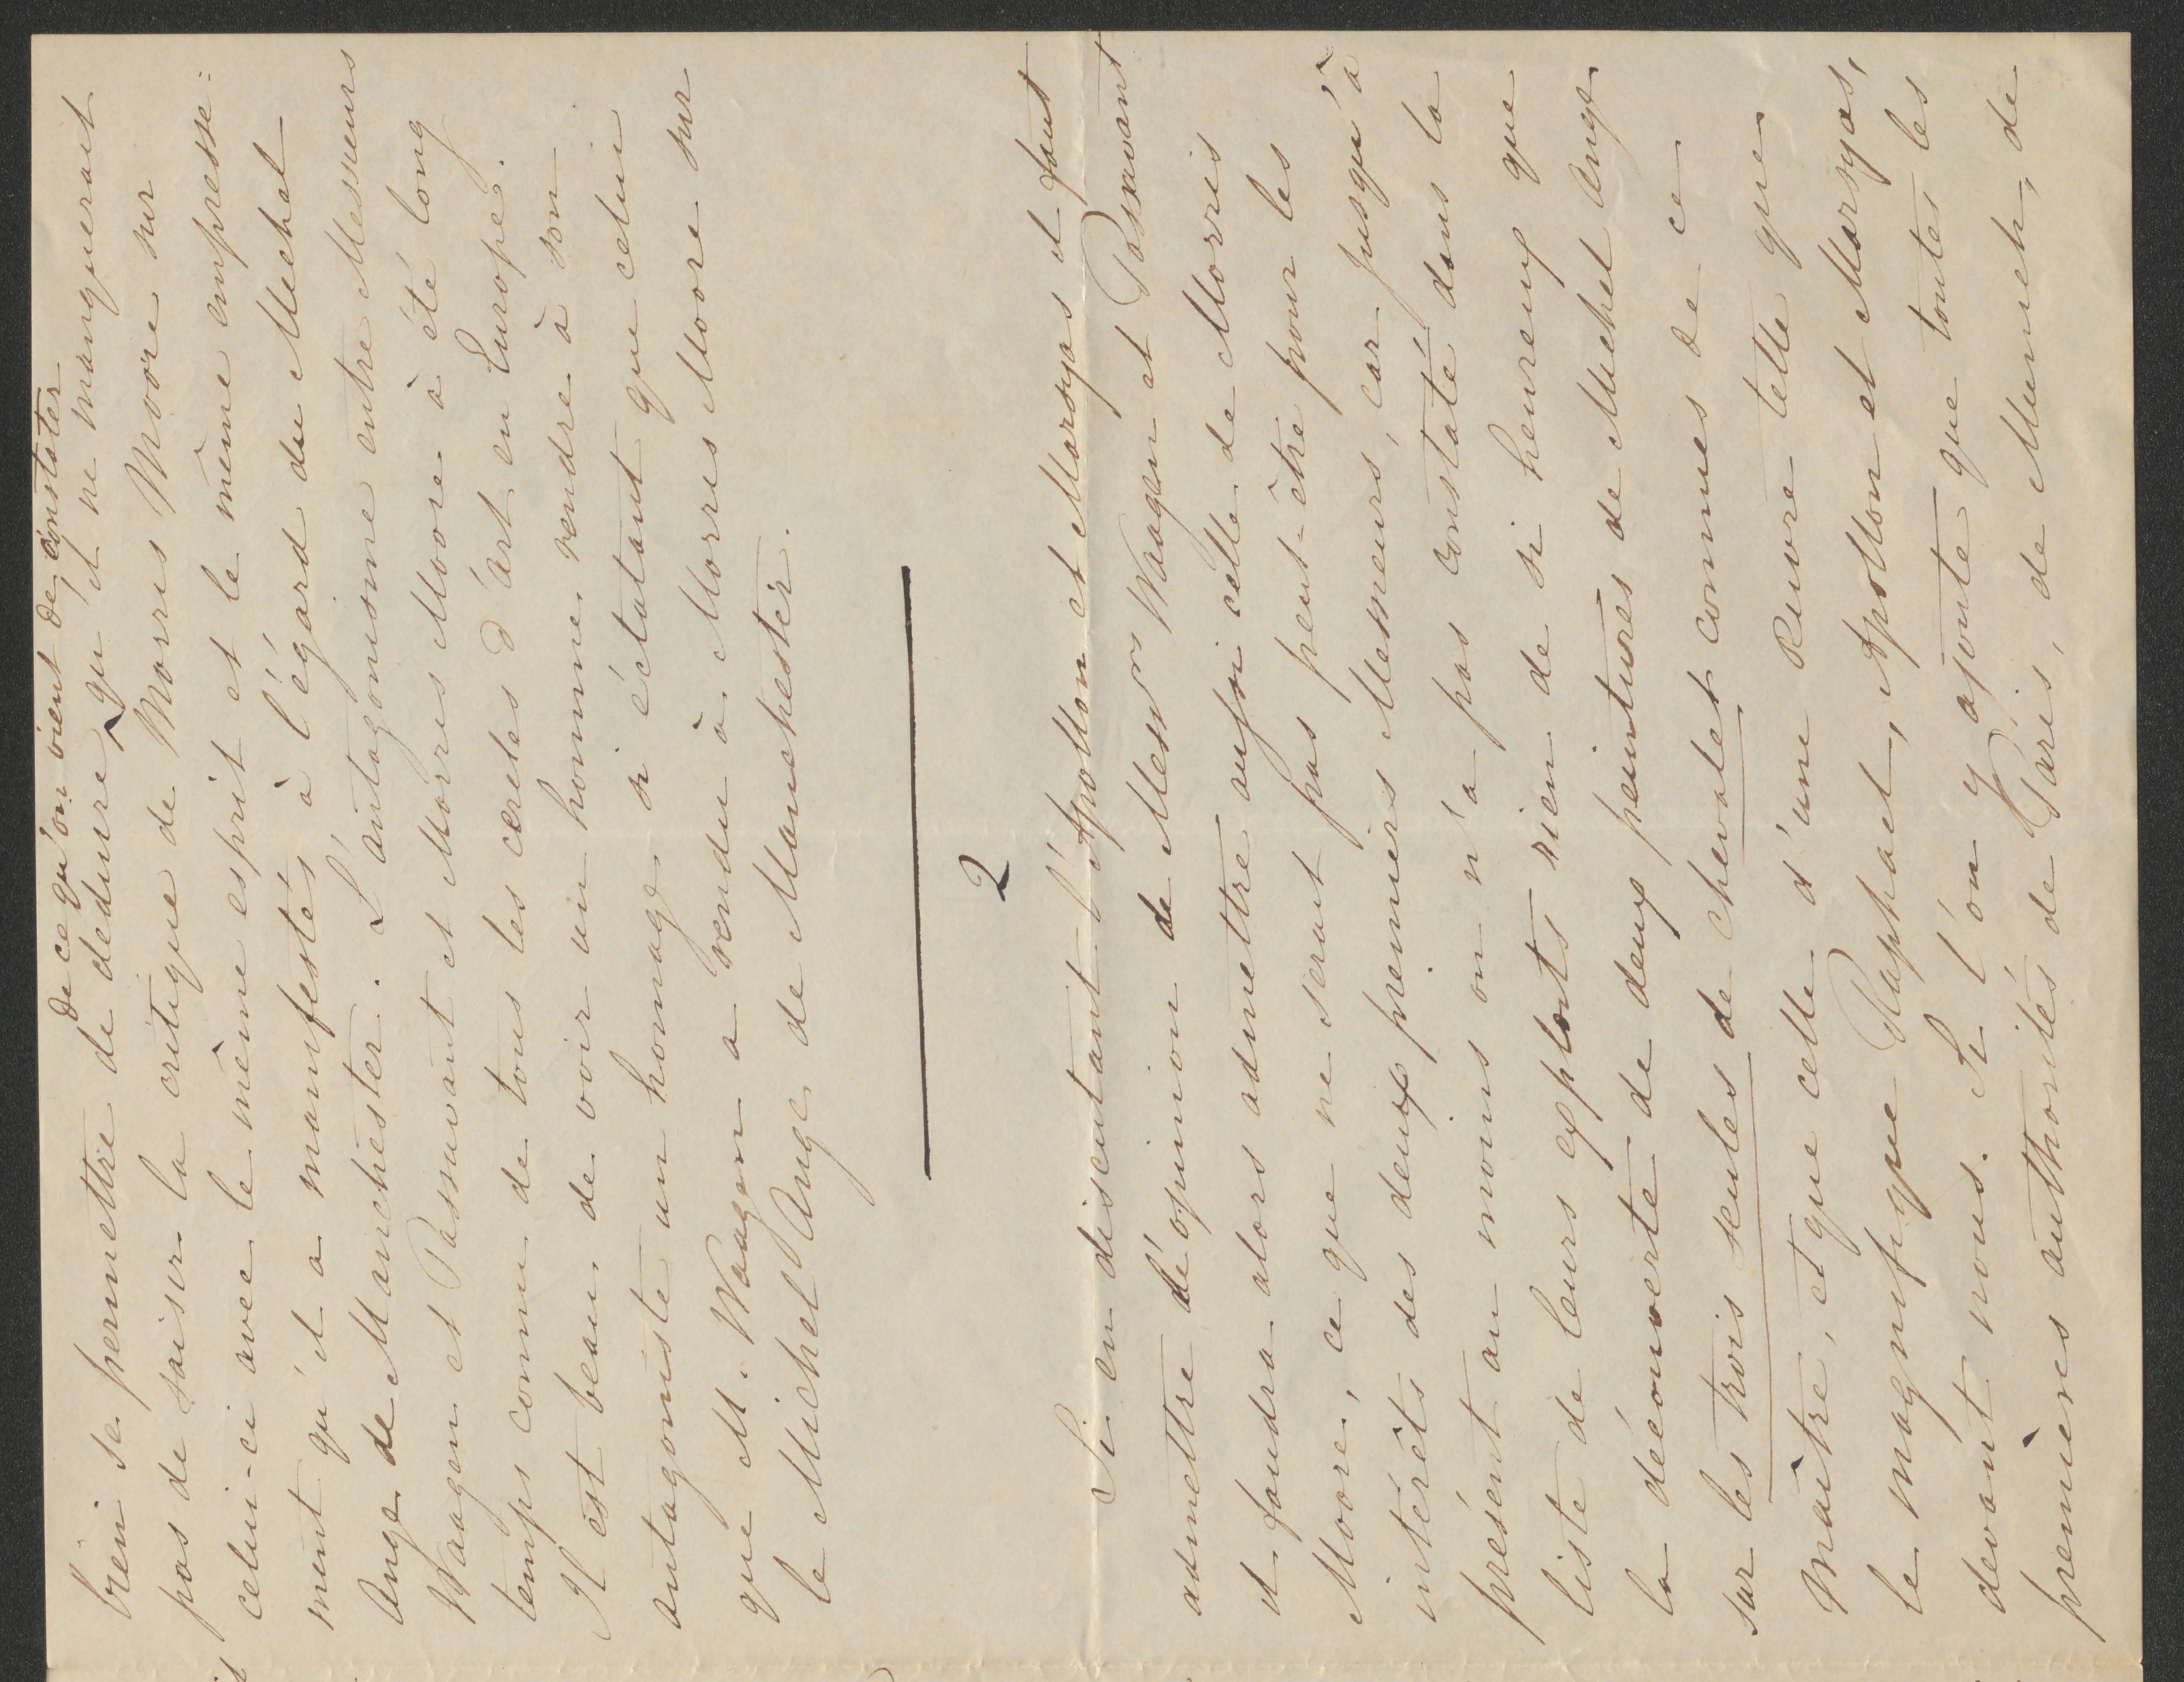 de ce qu'on vient de constater
bien se permettre de déduire ^ qu'il ne manquerait
pas de saisir la critique de Morris Moore sur
celui-ci avec le même esprit et le même empresse-
ment qu'il a manifestés à l'égard du Michel
Ange de Manchester. L'antagonisme entre Messieurs
Waagen et Passavant et Morris Moore à été long
temps connu de tous les cercles d'art en Europe.
Il est beau de voir un homme rendre à son
antagoniste un homage si éclatant que celui
que M. Waagen a rendu à Morris Moore sur
le Michel Ange de Manchester.
2
Si en discutant l'Apollon et Marsyas il faut
admettre l'opinion de Messrs Waagen et Passavant
il faudra alors admettre aussi celle de Morris
Moore, ce que ne serait pas peut-être pour les
intérêts des deux premiers Messieurs, car jusqu'à
présent au moins on n'a pas constaté dans la
liste de leurs exploits rien de si heureux que
la découverte de deux peintures de Michel Ange
sur les trois seules de chevalet connues de ce
maître, et que celle d'une œuvre telle que
le magnifique Raphael, Apollon et Marsyas,
devant nous. Si l'on y ajoute que toutes les
premières authorités de Paris, de Munich, de